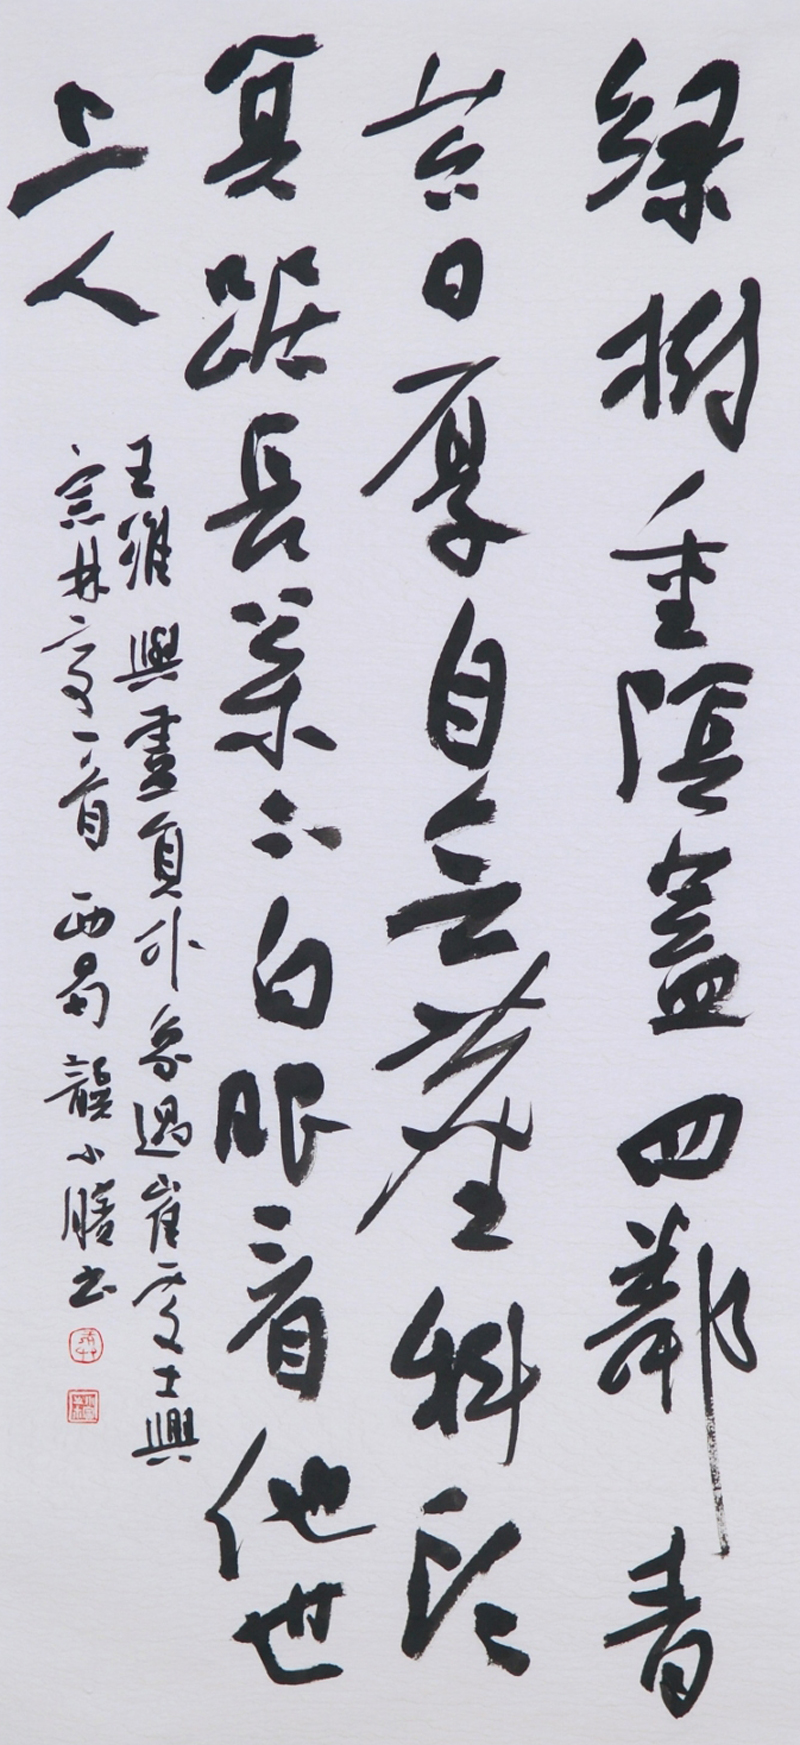 绿樹重陰蓋四鄰青
苔日厚自无塵科头
箕踞長松下白眼看他世
上人
王維與盧員外象過崔處士興
宗林亭一首 西蜀龔小书